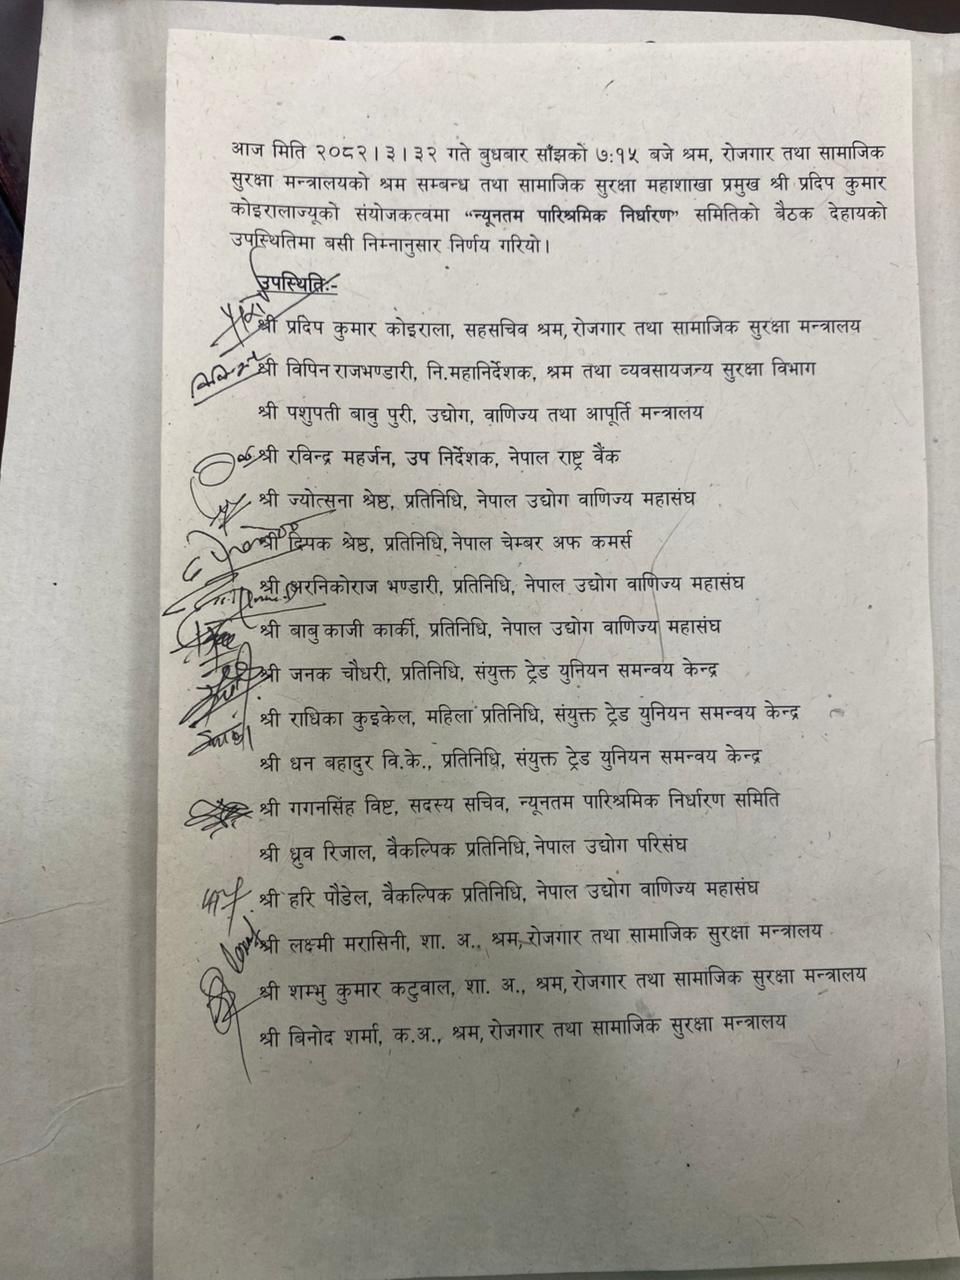 आज मिति २०८२।३।३२ गते बुधबार साँझको ७:१५ बजे श्रम, रोजगार तथा सामाजिक
सुरक्षा मन्त्रालयको श्रम सम्बन्ध तथा सामाजिक सुरक्षा महाशाखा प्रमुख श्री प्रदिप कुमार
कोइरालाज्यूको संयोजकत्वमा “न्यूनतम पारिश्रमिक निर्धारण” समितिको बैठक देहायको
उपस्थितिमा बसी निम्नानुसार निर्णय गरियो।
उपस्थितिः-
श्री प्रदिप कुमार कोइराला, सहसचिव श्रम, रोजगार तथा सामाजिक सुरक्षा मन्त्रालय
श्री विपिन राजभण्डारी, नि.महानिर्देशक, श्रम तथा व्यवसायजन्य सुरक्षा विभाग
श्री पशुपती बावु पुरी, उद्योग, वाणिज्य तथा आपूर्ति मन्त्रालय
श्री रविन्द्र महर्जन, उप निर्देशक, नेपाल राष्ट्र बैंक
श्री ज्योत्सना श्रेष्ठ, प्रतिनिधि, नेपाल उद्योग वाणिज्य महासंघ
श्री दिपक श्रेष्ठ, प्रतिनिधि, नेपाल चेम्बर अफ कमर्स
श्री अरनिकोराज भण्डारी, प्रतिनिधि, नेपाल उद्योग वाणिज्य महासंघ
श्री बाबु काजी कार्की, प्रतिनिधि, नेपाल उद्योग वाणिज्य महासंघ
श्री जनक चौधरी, प्रतिनिधि, संयुक्त ट्रेड युनियन समन्वय केन्द्र
श्री राधिका कुइकेल, महिला प्रतिनिधि, संयुक्त ट्रेड युनियन समन्वय केन्द्र
श्री धन बहादुर वि.के., प्रतिनिधि, संयुक्त ट्रेड युनियन समन्वय केन्द्र
श्री गगनसिंह विष्ट, सदस्य सचिव, न्यूनतम पारिश्रमिक निर्धारण समिति
श्री ध्रुव रिजाल, वैकल्पिक प्रतिनिधि, नेपाल उद्योग परिसंघ
श्री हरि पौडेल, वैकल्पिक प्रतिनिधि, नेपाल उद्योग वाणिज्य महासंघ
श्री लक्ष्मी मरासिनी, शा. अ., श्रम, रोजगार तथा सामाजिक सुरक्षा मन्त्रालय
श्री शम्भु कुमार कटुवाल, शा. अ., श्रम, रोजगार तथा सामाजिक सुरक्षा मन्त्रालय
श्री बिनोद शर्मा, क.अ., श्रम, रोजगार तथा सामाजिक सुरक्षा मन्त्रालय